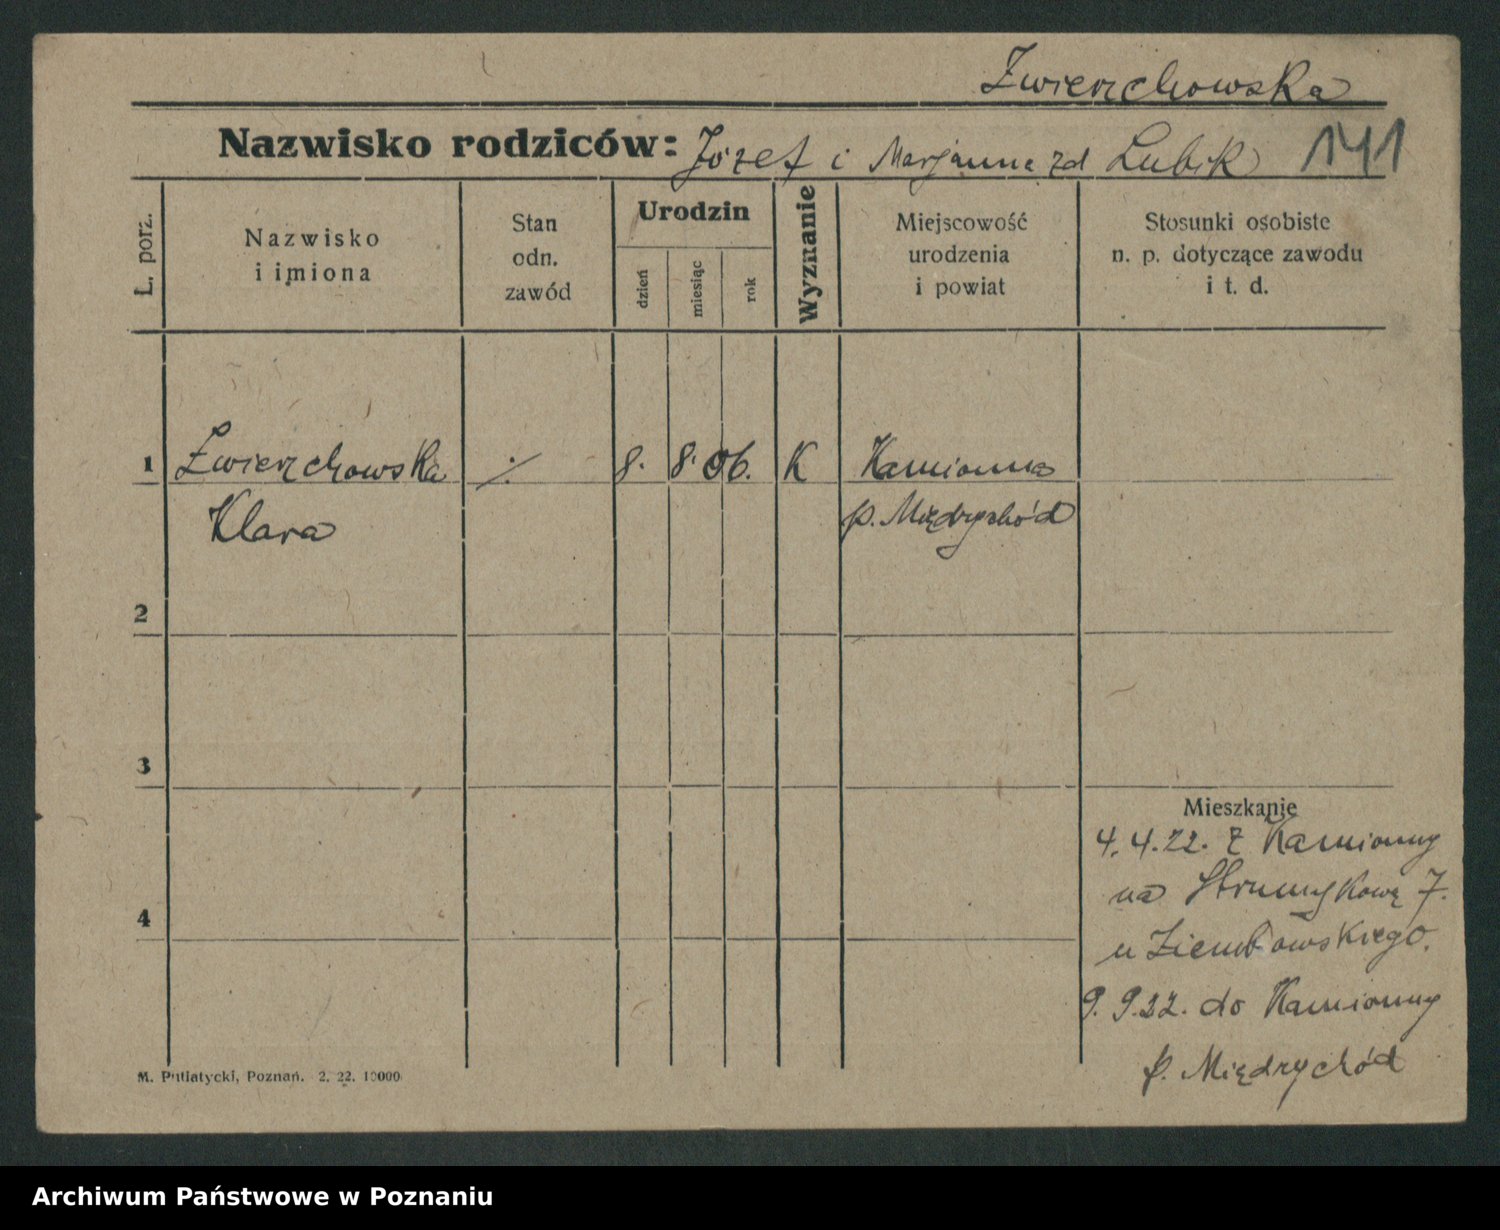 Zwierzchowska
Nazwisko rodziców: Józef i Marjanna zd Lubik 141
L. porz.
Nazwisko
i imiona
Stan
odn.
zawód
Urodzin
dzień
miesiąc
rok
Wyznanie
Miejscowość
urodzenia
i powiat
Stosunki osobiste
n. p. dotyczące zawodu
i t. d.
1 Zwierzchowska ·/· 8. 8. 06. K Kamionna
Klara p. Międzychód
2
3
Mieszkanie
4. 4. 22. z Kamionny
4 na Strumykową 7.
u Ziembowskiego.
9. 9. 22. do Kamionny
p. Międzychód
M. Putiatycki, Poznań. 2. 22. 10000
Archiwum Państwowe w Poznaniu